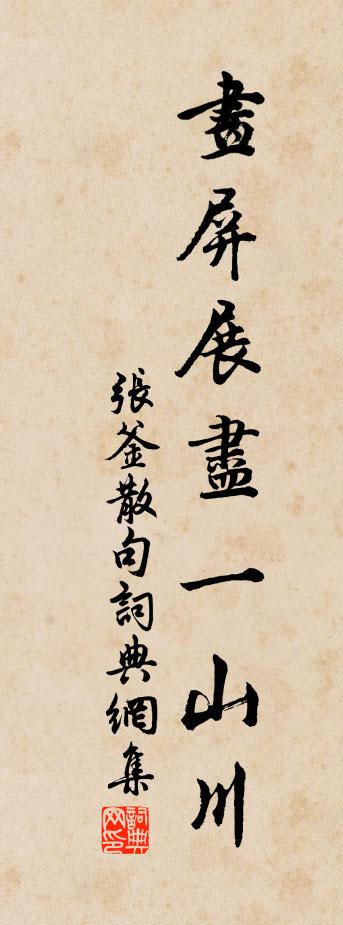 畫屏展盡一山川
張釜散句詞典網集
詞典网印